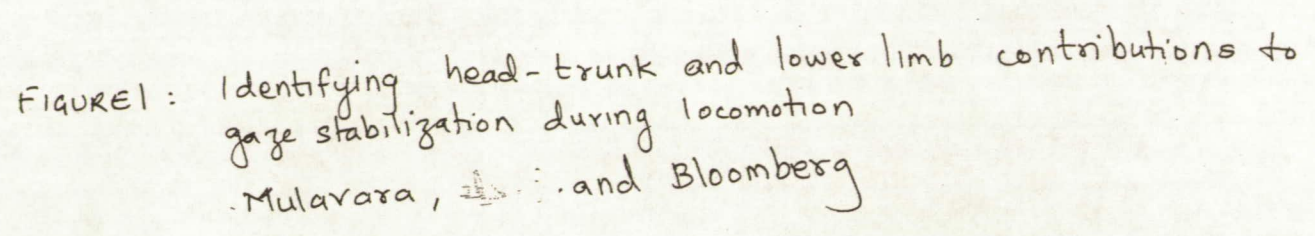 FIGURE1 : Identifying head-trunk and lower limb contributions to
gaze stabilization during locomotion
Mulavara, and Bloomberg